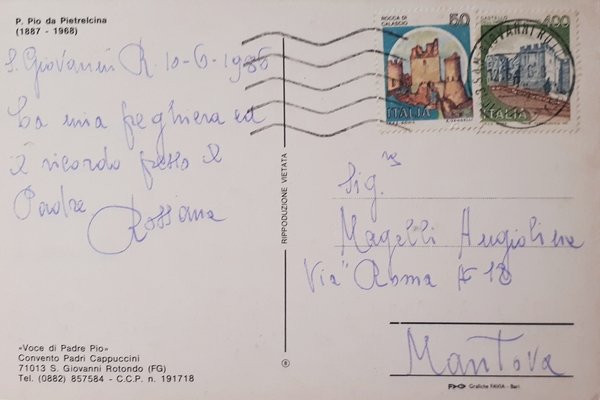 P. Pio da Pietrelcina
(1887 - 1968)
S. Giovanni R. 10-6-1986
La mia preghiera ed
il ricordo presso il
Padre
Rossana
«Voce di Padre Pio»
Convento Padri Cappuccini
71013 S. Giovanni Rotondo (FG)
Tel. (0882) 857584 - C.C.P. n. 191718
RIPRODUZIONE VIETATA
ROCCA DI
CALASCIO
50
ITALIA
CASTELLO
400
ITALIA
Sig.ra
Magelli Angiolina
Via Roma
18
Mantova
Grafiche FAVIA - Bari